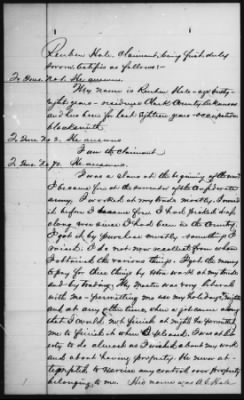 Reuben Hale Claimant, being first duly
sworn, testifies as follows:-
To Ques. No 1. He answers.
My name is Reuben Hale - age sixty-
eight years - residence Clark County, Arkansas
and have been for last eighteen years - occupation
blacksmith
To Ques. No 2. He answers
I am the claimant
To Ques. No 70. He answers.
I was a slave at the beginning of the war
I became free at the surrender of the Confederate
army. I worked at my trade mostly. I owned
it before I became free. I had picked it up
along ever since I had been in the County.
I got it by purchase mostly, something I
raised. I do not now recollect from whom
I obtained the various things. I got the money
to pay for these things by extra work at my trade
and by trading. My master was very liberal
with me - permitting me use my holidays, nights
and at any other time, when I got a
that I could not finish at night he permitted
me to finish it when I pleased. I was at lib-
erty to do almost as I wished about my work
and about having property. He never at-
tempted to exercise any control over property
belonging to me. His name was Hale